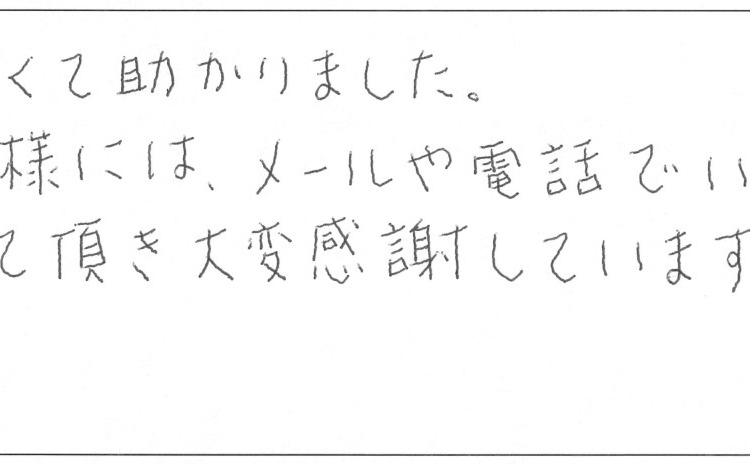 くて助かりました。
様には、メールや電話でい
て頂き大変感謝しています